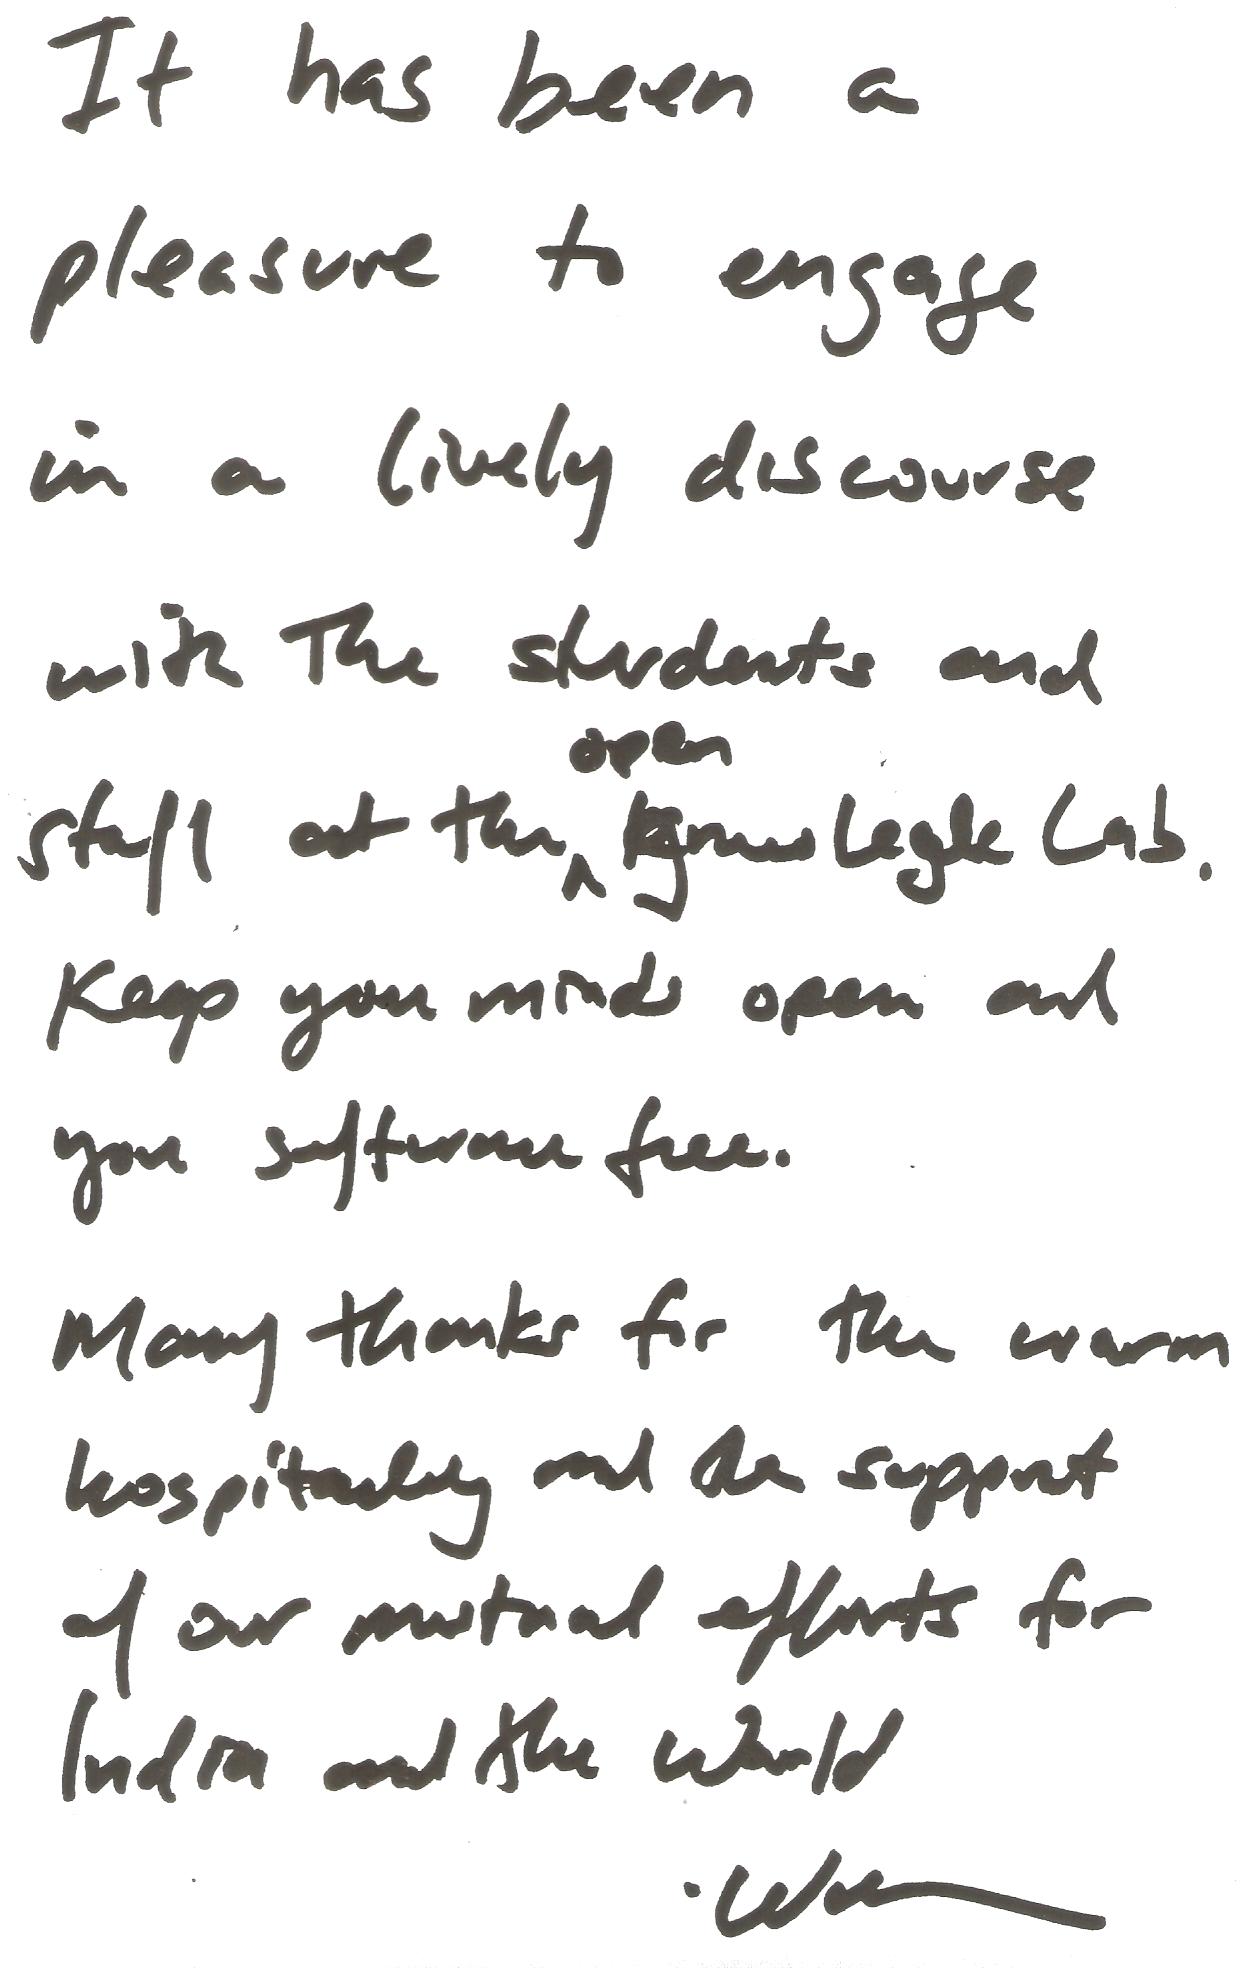 It has been a
pleasure to engage
in a lively discourse
with The students and
open
staff at the ^ Knowlegde Lab.
Keep your minds open and
your software free.
Many thanks for the warm
hospitality and the support
of our mutual efforts for
India and the World